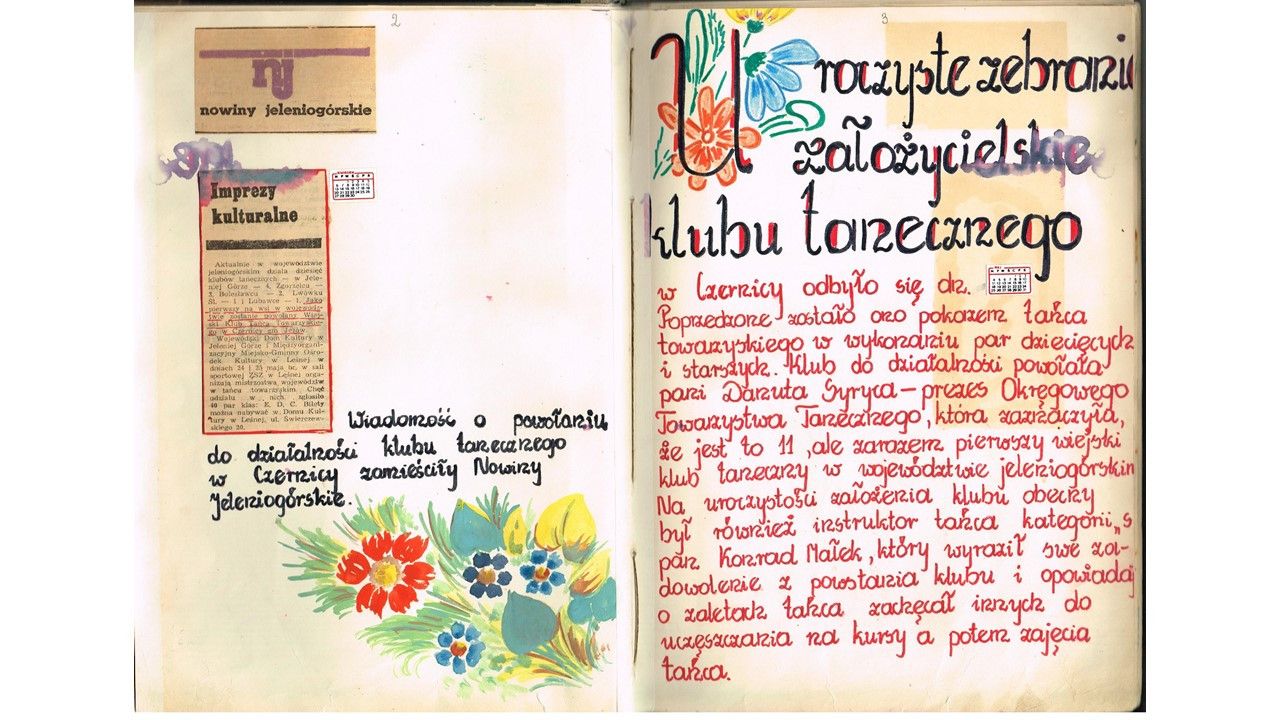 2
nj
nowiny jeleniogórskie
Imprezy
kulturalne
Aktualnie w województwie
jeleniogórskim działa dziesięć
klubów tanecznych — w Jele-
niej Górze — 4, Zgorzelcu —
3, Bolesławcu — 2, Lwówku
Śl. — 1 i Lubawce — 1. Jako
pierwszy na wsi w wojewódz-
twie zostanie powołany Wiej-
ski Klub Tańca Towarzyskie-
go w Czernicy gm Jeżów.
Wojewódzki Dom Kultury w
Jeleniej Górze i Międzyorgani-
zacyjny Miejsko-Gminny Ośro-
dek Kultury w Leśnej w
dniach 24 i 25 maja br. w sali
sportowej ZSZ w Leśnej orga-
nizują mistrzostwa województw
w tańcu towarzyskim. Chęć
udziału w nich zgłosiło
40 par klas: E, D, C. Bilety
można nabywać w Domu Kul-
tury w Leśnej, ul. Świerczew-
skiego 20.
Wiadomość o powołaniu
do działalności klubu tanecznego
w Czernicy zamieściły Nowiny
Jeleniogórskie.
3
Uroczyste zebranie
założycielskie
klubu tanecznego
w Czernicy odbyło się dn.
Poprzedzone zostało ono pokazem tańca
towarzyskiego w wykonaniu par dziecięcych
i starszych. Klub do działalności powołała
pani Danuta Syryca — prezes Okręgowego
Towarzystwa Tanecznego, która zaznaczyła,
że jest to 11, ale zarazem pierwszy wiejski
klub taneczny w województwie jeleniogórskim
Na uroczystości założenia klubu obecny
był również instruktor tańca kategorii „S
pan Konrad Małek, który wyraził swe za-
dowolenie z powstania klubu i opowiadaj
o zaletach tańca zachęcał innych do
uczęszczania na kursy a potem zajęcia
tańca.